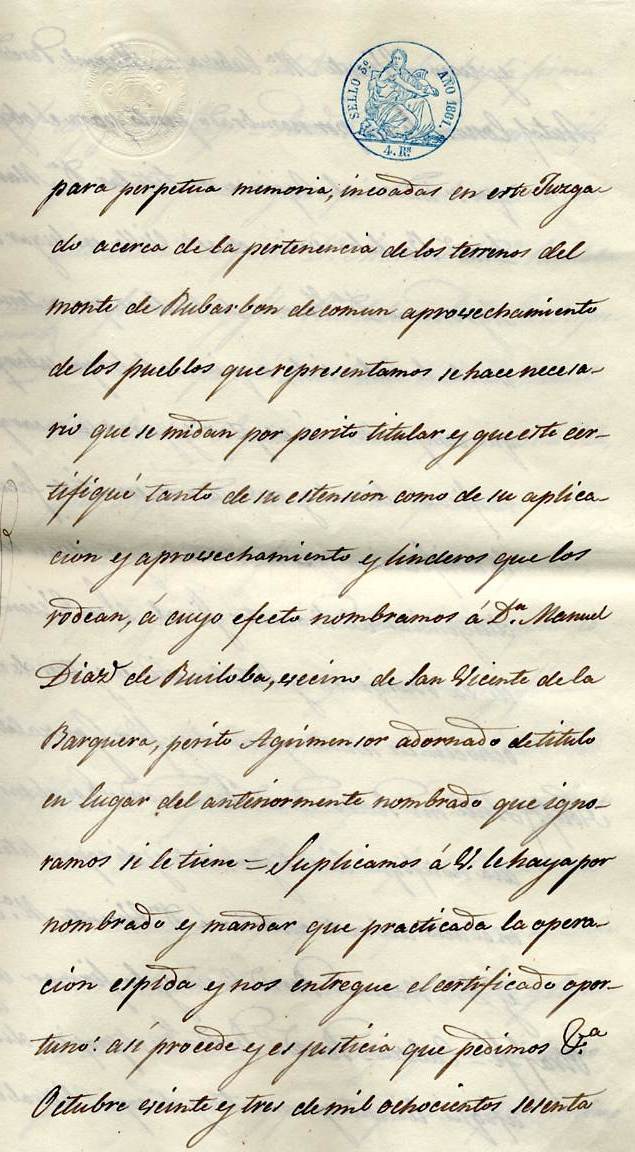 SELLO 5º AÑO 1861.
4. Rs
para perpetua memoria, incoadas en este Juzga-
do acerca de la pertenencia de los terrenos del
monte de Rubarbon de comun aprovechamiento
de los pueblos que representamos se hace necesa-
rio que se midan por perito titular y que este cer-
tifiqué tanto de su estension como de su aplica-
cion y aprovechamiento y linderos que los
rodean, á cuyo efecto nombramos á Dn. Manuel
Diaz de Ruiloba, vecino de San Vicente de la
Barquera, perito Agrimensor adornado de titulo
en lugar del anteriormente nombrado que igno-
ramos si le tiene = Suplicamos á V. le haya por
nombrado y mandar que practicada la opera-
ción espida y nos entregue el certificado opor-
tuno: así procede y es justicia que pedimos
Octubre veinte y tres de mil ochocientos sesenta